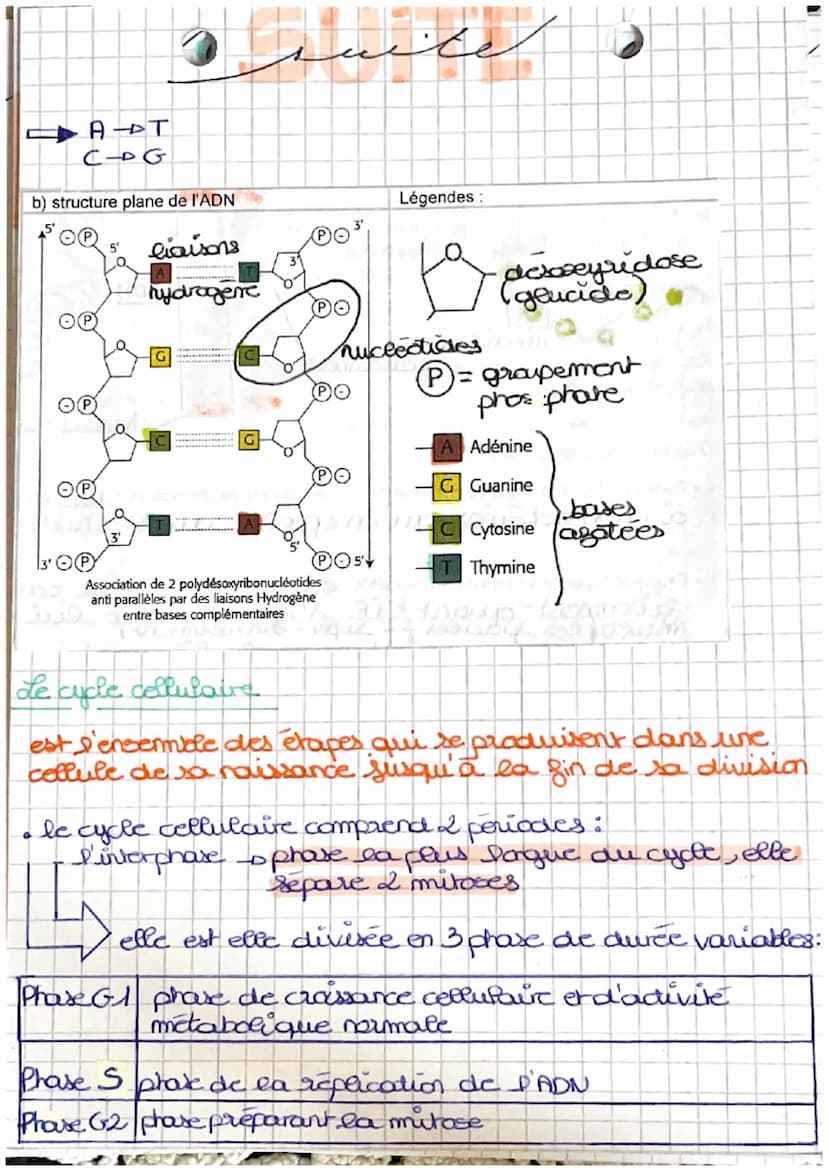 SUITE
suite
⇒ A → T
C → G
b) structure plane de l'ADN
Légendes :
5' 3'
liaisons
hydrogène
5' 3'
A T
G C
C G
T A
3' 5'
3' 5'
nucléotides
désoxyridose
(glucide)
P = groupement
phosphate
A Adénine
G Guanine
C Cytosine
T Thymine
bases
azotées
Association de 2 polydésoxyribonucléotides
anti parallèles par des liaisons Hydrogène
entre bases complémentaires
Le cycle cellulaire
est l'ensemble des étapes qui se produisent dans une
cellule de sa naissance jusqu'à la fin de sa division
• le cycle cellulaire comprend 2 périodes :
- l'interphase → phase la plus longue du cycle, elle
sépare 2 mitoses
elle est elle divisée en 3 phase de durée variables :
Phase G1 phase de croissance cellulaire et d'activité
métabolique normale
Phase S phase de la réplication de l'ADN
Phase G2 phase préparant la mitose